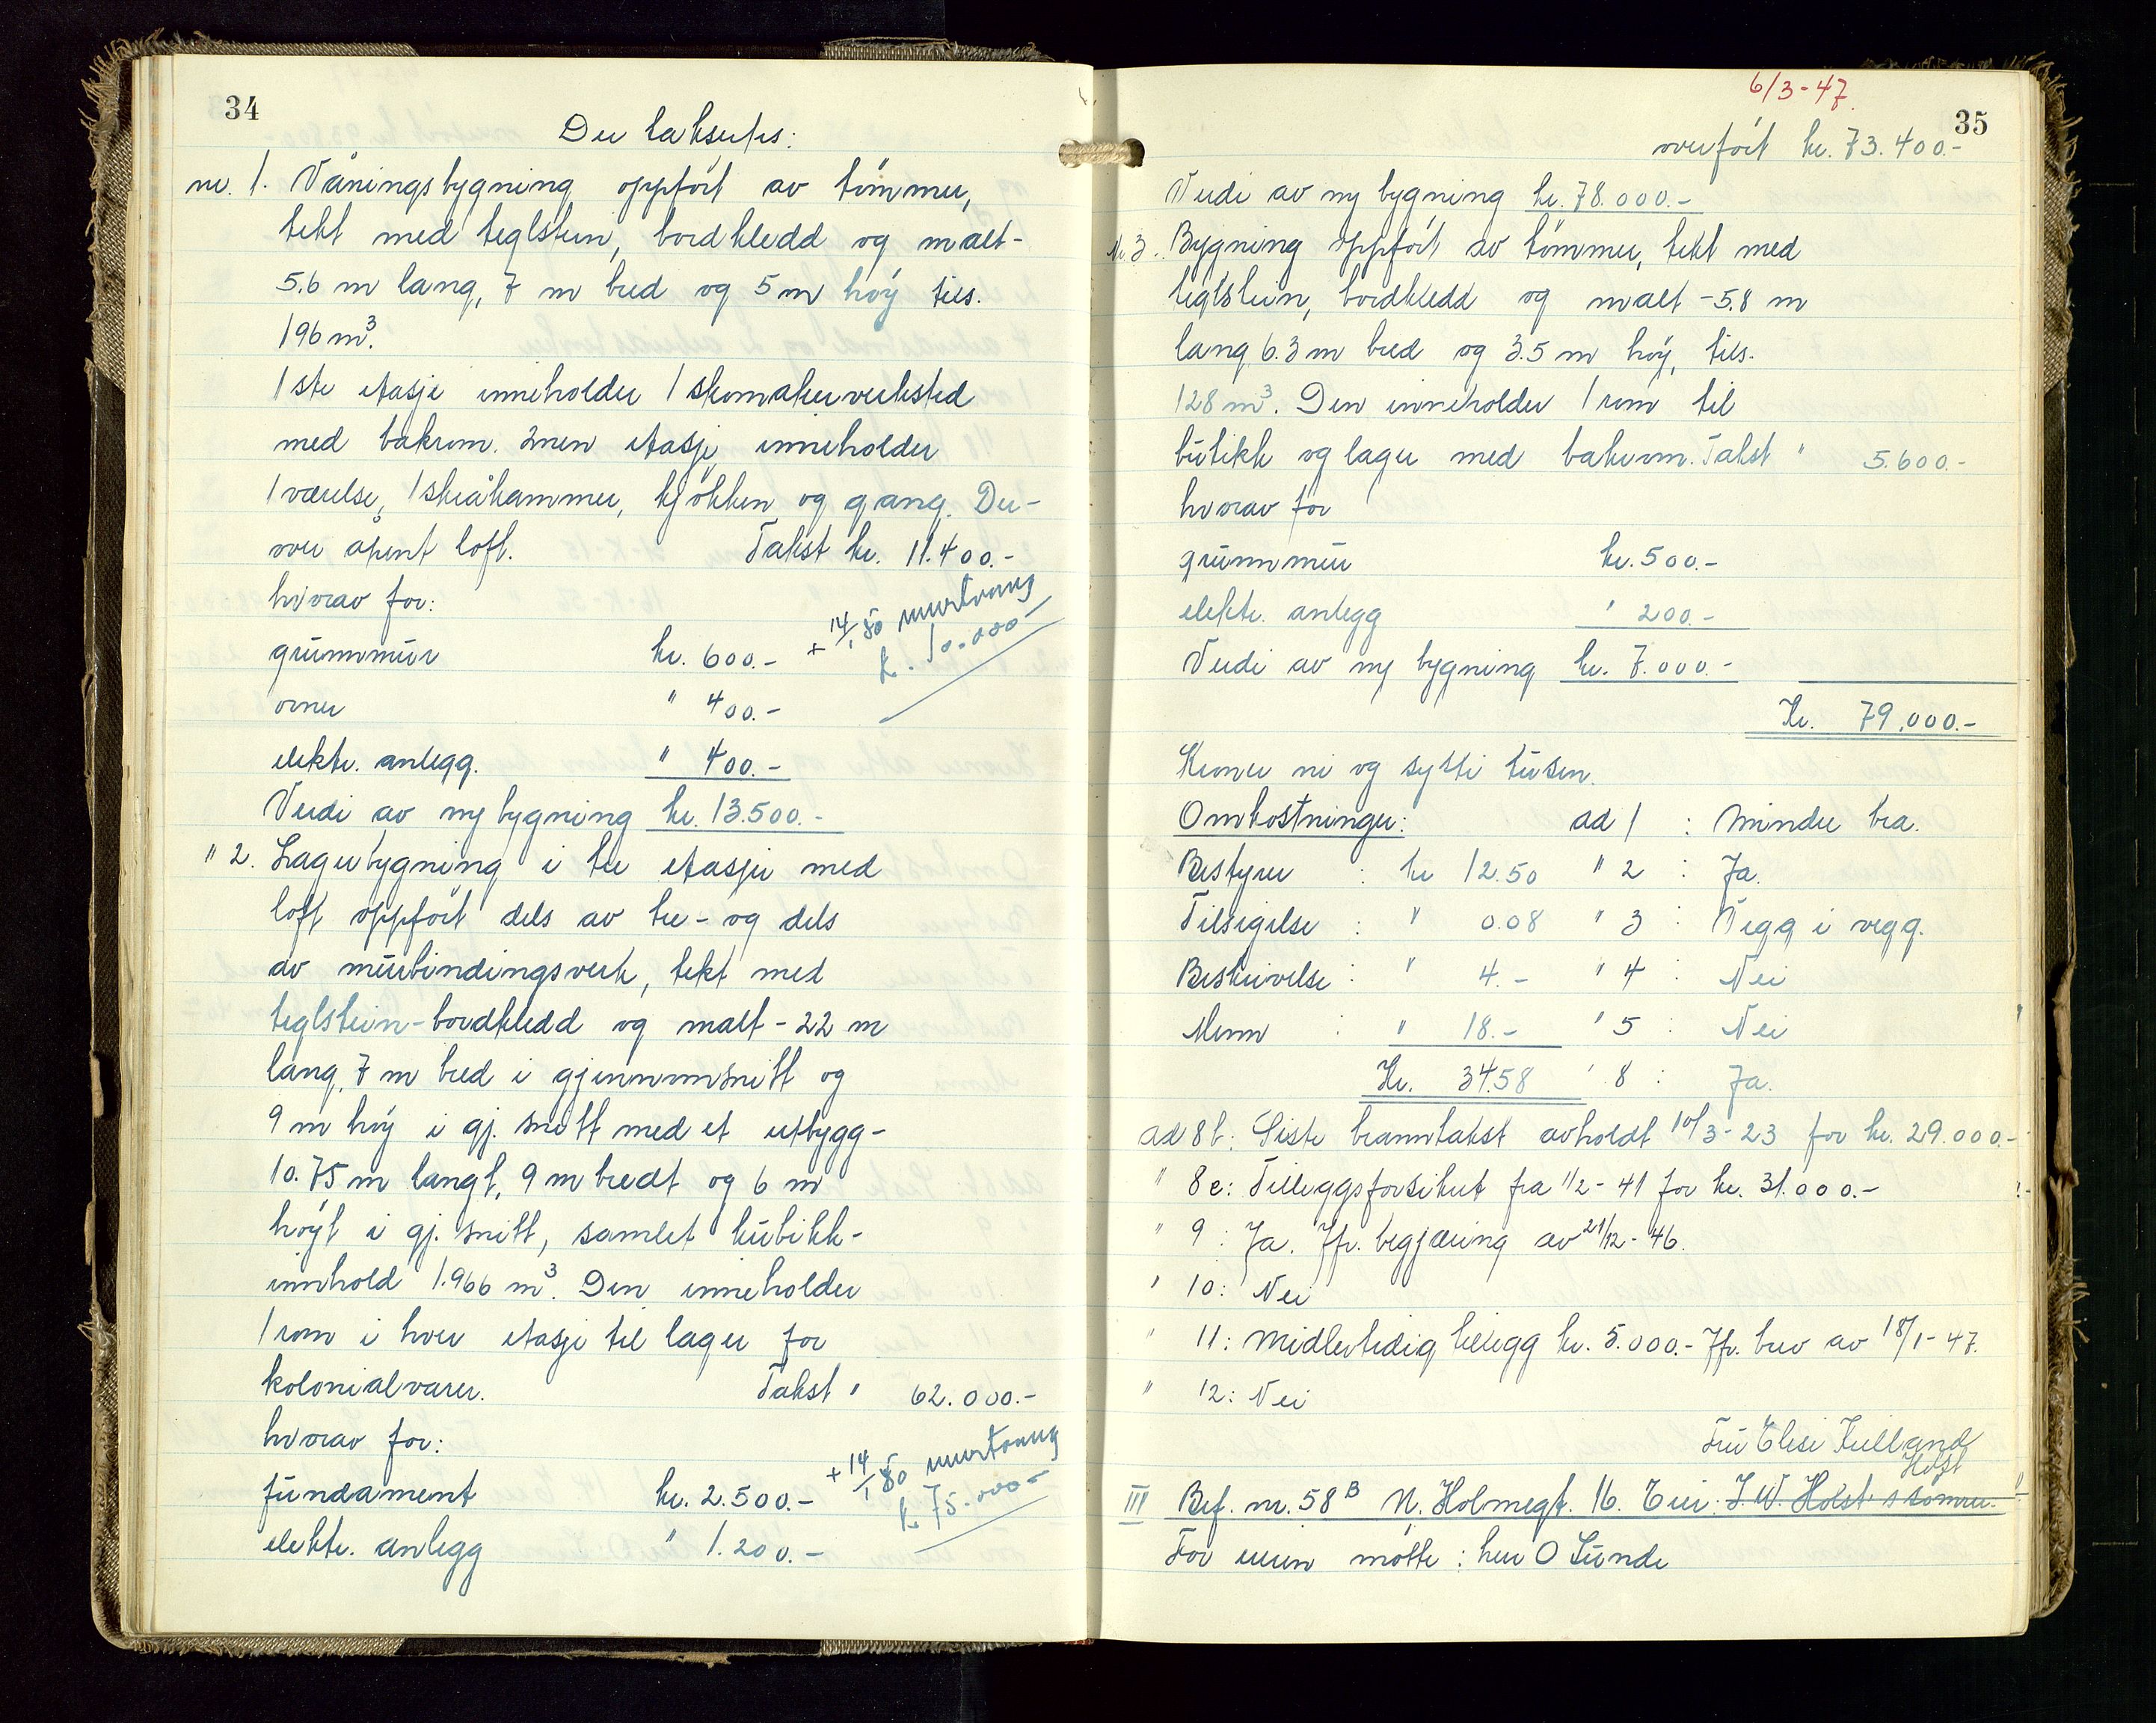 34
Der takseres:
nr. 1. Våningsbygning oppført av tømmer,
tekt med teglstein, bordkledd og malt-
5.6 m lang, 7 m bred og 5 m høy tils.
196 m³.
1ste etasje inneholder 1 skomakerverksted
med bakrom. 2nen etasje inneholder
1 værelse, 1 skråkammer, kjøkken og gang. Der-
over åpent loft. Takst kr. 11.400.-
hvorav for:
+ 14/1 50 murtvang
k. 10.000-
grunnmur kr. 600.-
ovner " 400.-
elektr. anlegg. " 400.-
Verdi av ny bygning kr. 13.500.-
" 2. Lagerbygning i tre etasjer med
loft oppført dels av tre- og dels
av murbindingsverk, tekt med
teglstein-bordkledd og malt-22 m
lang, 7 m bred i gjennomsnitt og
9 m høy i gj. snitt med et utbygg-
10.75 m langt, 9 m bredt og 6 m
høyt i gj. snitt, samlet kubikk-
innhold 1.966 m³. Den inneholder
1 rom i hver etasje til lager for
kolonialvarer. Takst " 62.000.-
hvorav for:
+ 14/1 50 murtvang
k. 75.000-
fundament kr. 2.500.-
elektr. anlegg " 1.200.-
6/3-47.
35
overført kr. 73.400.-
Verdi av ny bygning kr. 78.000.-
Nr 3. Bygning oppført av tømmer, tekt med
teglstein, bordkledd og malt -5.8 m
lang 6.3 m bred og 3.5 m høy, tils.
128 m³. Den inneholder 1 rom til
butikk og lager med bakrom. Takst " 5.600.-
hvorav for
grunnmur kr. 500.-
elektr. anlegg " 200.-
Verdi av ny bygning kr. 7.000.-
Kr. 79.000.-
Kroner ni og sytti tusen.
Omkostninger: ad 1 : Mindre bra.
Bestyrer : kr 12.50 " 2 : Ja.
Tilsigelse : " 0.08 " 3 : Vegg i vegg.
Beskrivelse : " 4.- " 4 : Nei
Menn : " 18.- " 5 : Nei
Kr. 34.58 " 8 : Ja.
ad 8 b: Siste branntakst avholdt 10/3-23 for kr. 29.000.-
" 8 c: Tilleggsforsikret fra 1/2-41 for kr. 31.000.-
" 9 : Ja. Jfr. begjæring av 21/12-46.
" 10: Nei
" 11: Midlertidig tillegg kr. 5.000.- Jfr. brev av 18/1-47.
" 12: Nei
Fru Elise Kielland
Holst
III Brf. nr. 58 B N. Holmegt. 16. Eier: J. W. Holst's sønner.
For eieren møtte: herr O Sunde